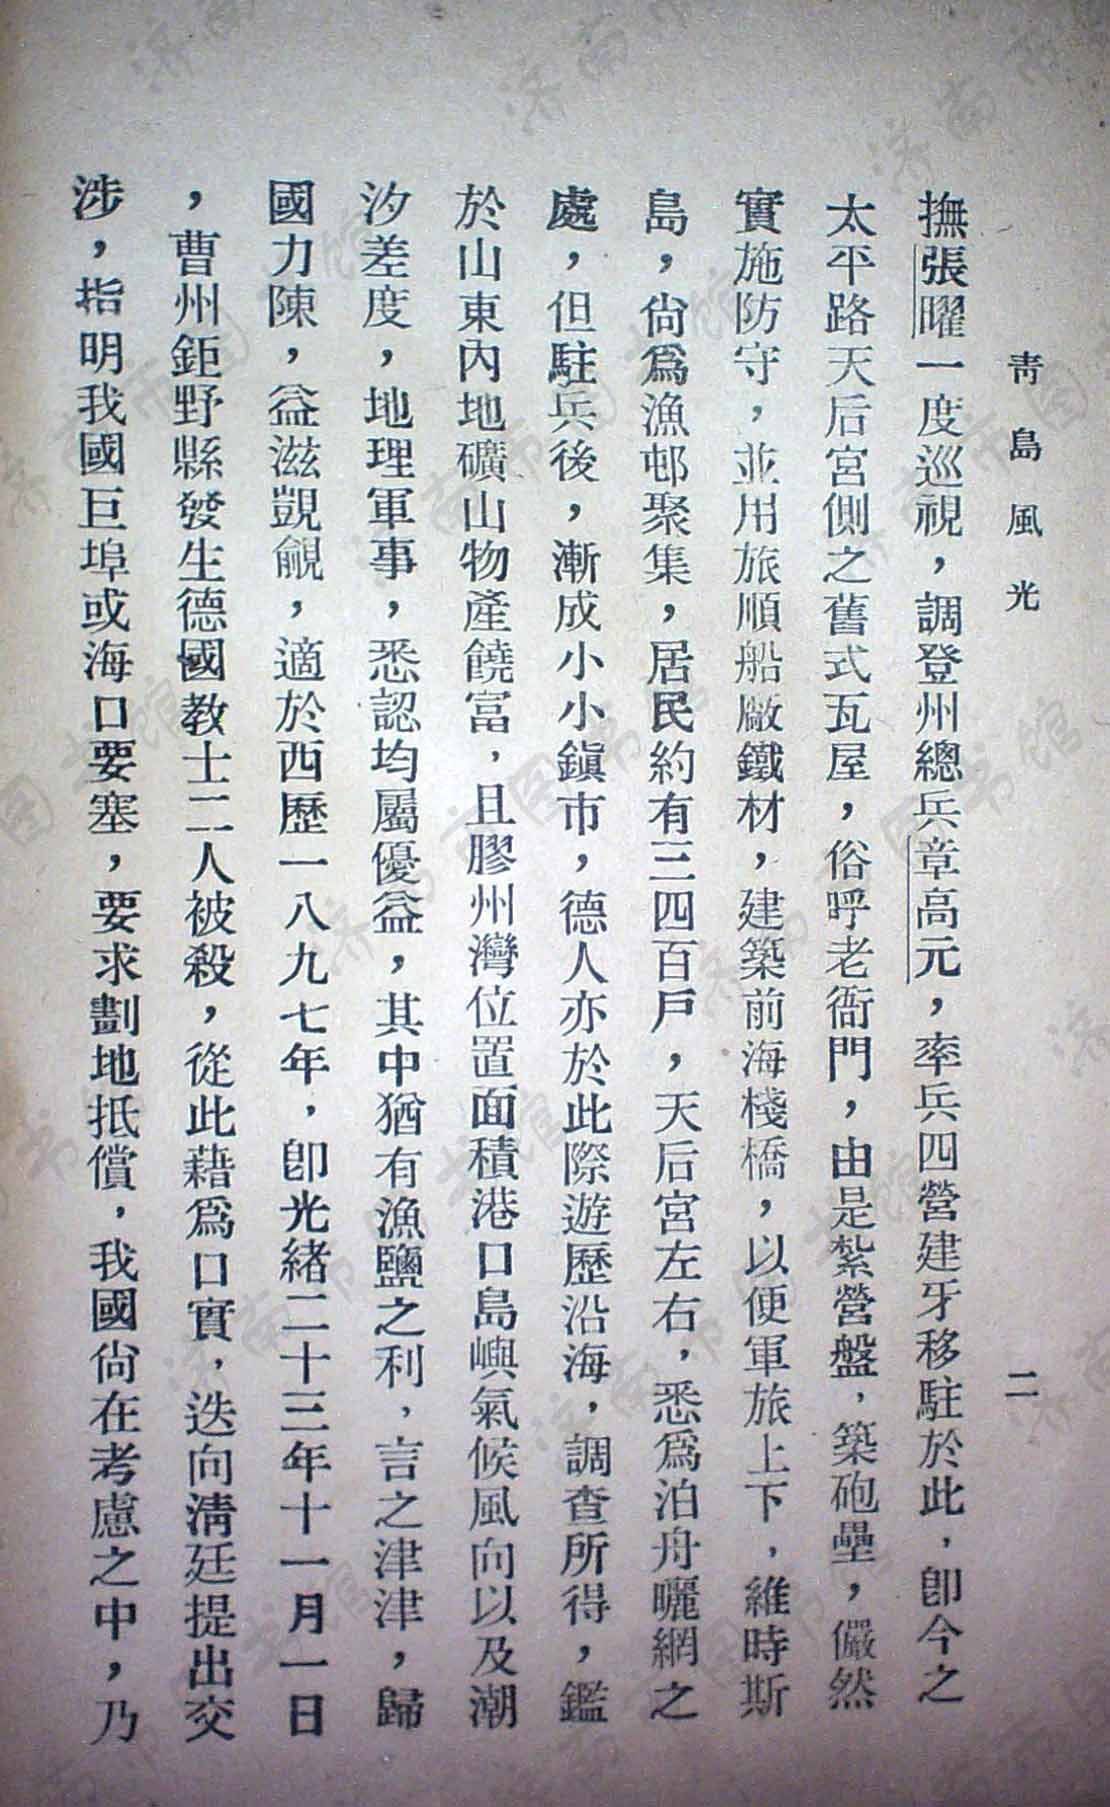 青島風光
二
撫張曜一度巡視，調登州總兵章高元，率兵四營建牙移駐於此，卽今之
太平路天后宮側之舊式瓦屋，俗呼老衙門，由是紮營盤，築砲壘，儼然
實施防守，並用旅順船廠鐵材，建築前海棧橋，以便軍旅上下，維時斯
島，尙爲漁邨聚集，居民約有三四百戶，天后宮左右，悉爲泊舟曬網之
處，但駐兵後，漸成小小鎭市，德人亦於此際遊歷沿海，調查所得，鑑
於山東內地礦山物產饒富，且膠州灣位置面積港口島嶼氣候風向以及潮
汐差度，地理軍事，悉認均屬優益，其中猶有漁鹽之利，言之津津，歸
國力陳，益滋覬覦，適於西歷一八九七年，卽光緒二十三年十一月一日
，曹州鉅野縣發生德國教士二人被殺，從此藉爲口實，迭向淸廷提出交
涉，指明我國巨埠或海口要塞，要求劃地抵償，我國尙在考慮之中，乃
济南市图书馆